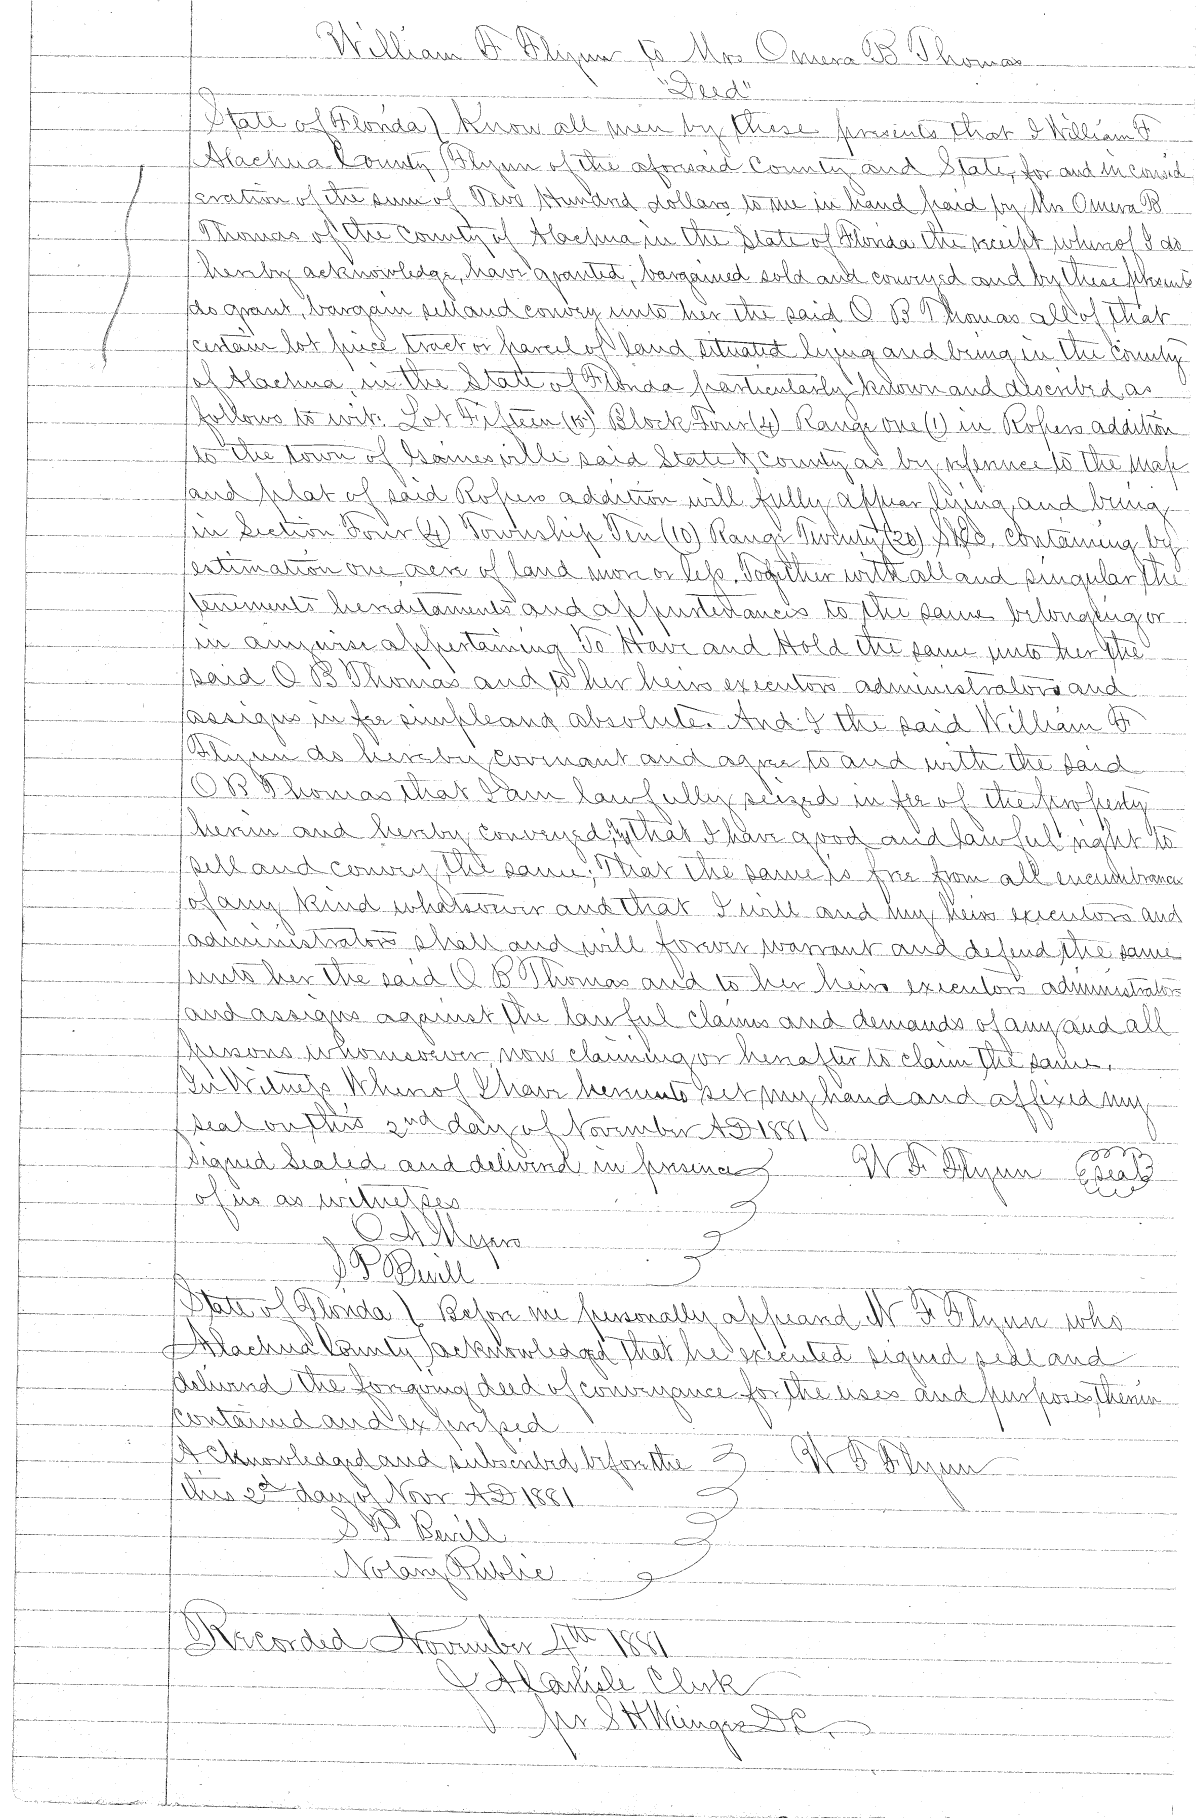 William F Flynn to Mrs Omera B Thomas
"Deed"
State of Florida } Know all men by these presents that I William F
Alachua County } Flynn of the aforesaid County and State, for and in consid
eration of the sum of Two Hundred dollars to me in hand paid by Mrs Omera B
Thomas of the County of Alachua in the State of Florida the receipt whereof I do
hereby acknowledge, have granted, bargained sold and conveyed and by these presents
do grant, bargain sell and convey unto her the said O B Thomas all of that
certain lot piece tract or parcel of land situated lying and being in the County
of Alachua in the State of Florida particularly known and described as
follows to wit. Lot Fifteen (15) Block Four (4) Range one (1) in Ropers addition
to the town of Gainesville said State & County as by reference to the map
and plat of said Ropers addition will fully appear lying and being
in Section Four (4) Township Ten (10) Range Twenty (20) S&E, containing by
estimation one acre of land more or less. Together with all and singular the
tenements hereditaments and appurtenances to the same belonging or
in anywise appertaining To Have and Hold the same unto her the
said O B Thomas and to her heirs executors administrators and
assigns in fee simple and absolute. And I the said William F
Flynn do hereby covenant and agree to and with the said
O B Thomas that I am lawfully seized in fee of the property
herein and hereby conveyed; that I have good and lawful right to
sell and convey the same; That the same is free from all encumbrances
of any kind whatsoever and that I will and my heirs executors and
administrators shall and will forever warrant and defend the same
unto her the said O B Thomas and to her heirs executors administrators
and assigns against the lawful claims and demands of any and all
persons whomsoever now claiming or hereafter to claim the same.
In Witness Whereof I have hereunto set my hand and affixed my
seal on this 2nd day of November AD 1881
Signed Sealed and delivered in presence } W F Flynn (seal)
of us as witnesses
O A Myers
S P Bevill
State of Florida } Before me personally appeared W F Flynn who
Alachua County } acknowledged that he executed signed seal and
delivered the foregoing deed of conveyance for the uses and purposes therein
contained and expressed
Acknowledged and subscribed before me } W F Flynn
this 2nd day of Novr AD 1881
S P Bevill
Notary Public
Recorded November 4th 1881
J A Carlisle Clerk
pr S H Wienges D C.